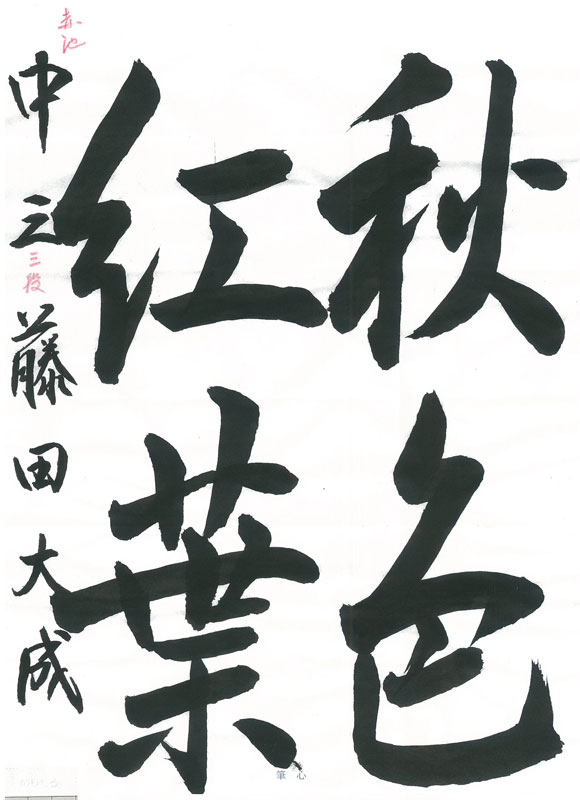 秋色
紅葉
赤池
中三 藤田大成
三段
筆心